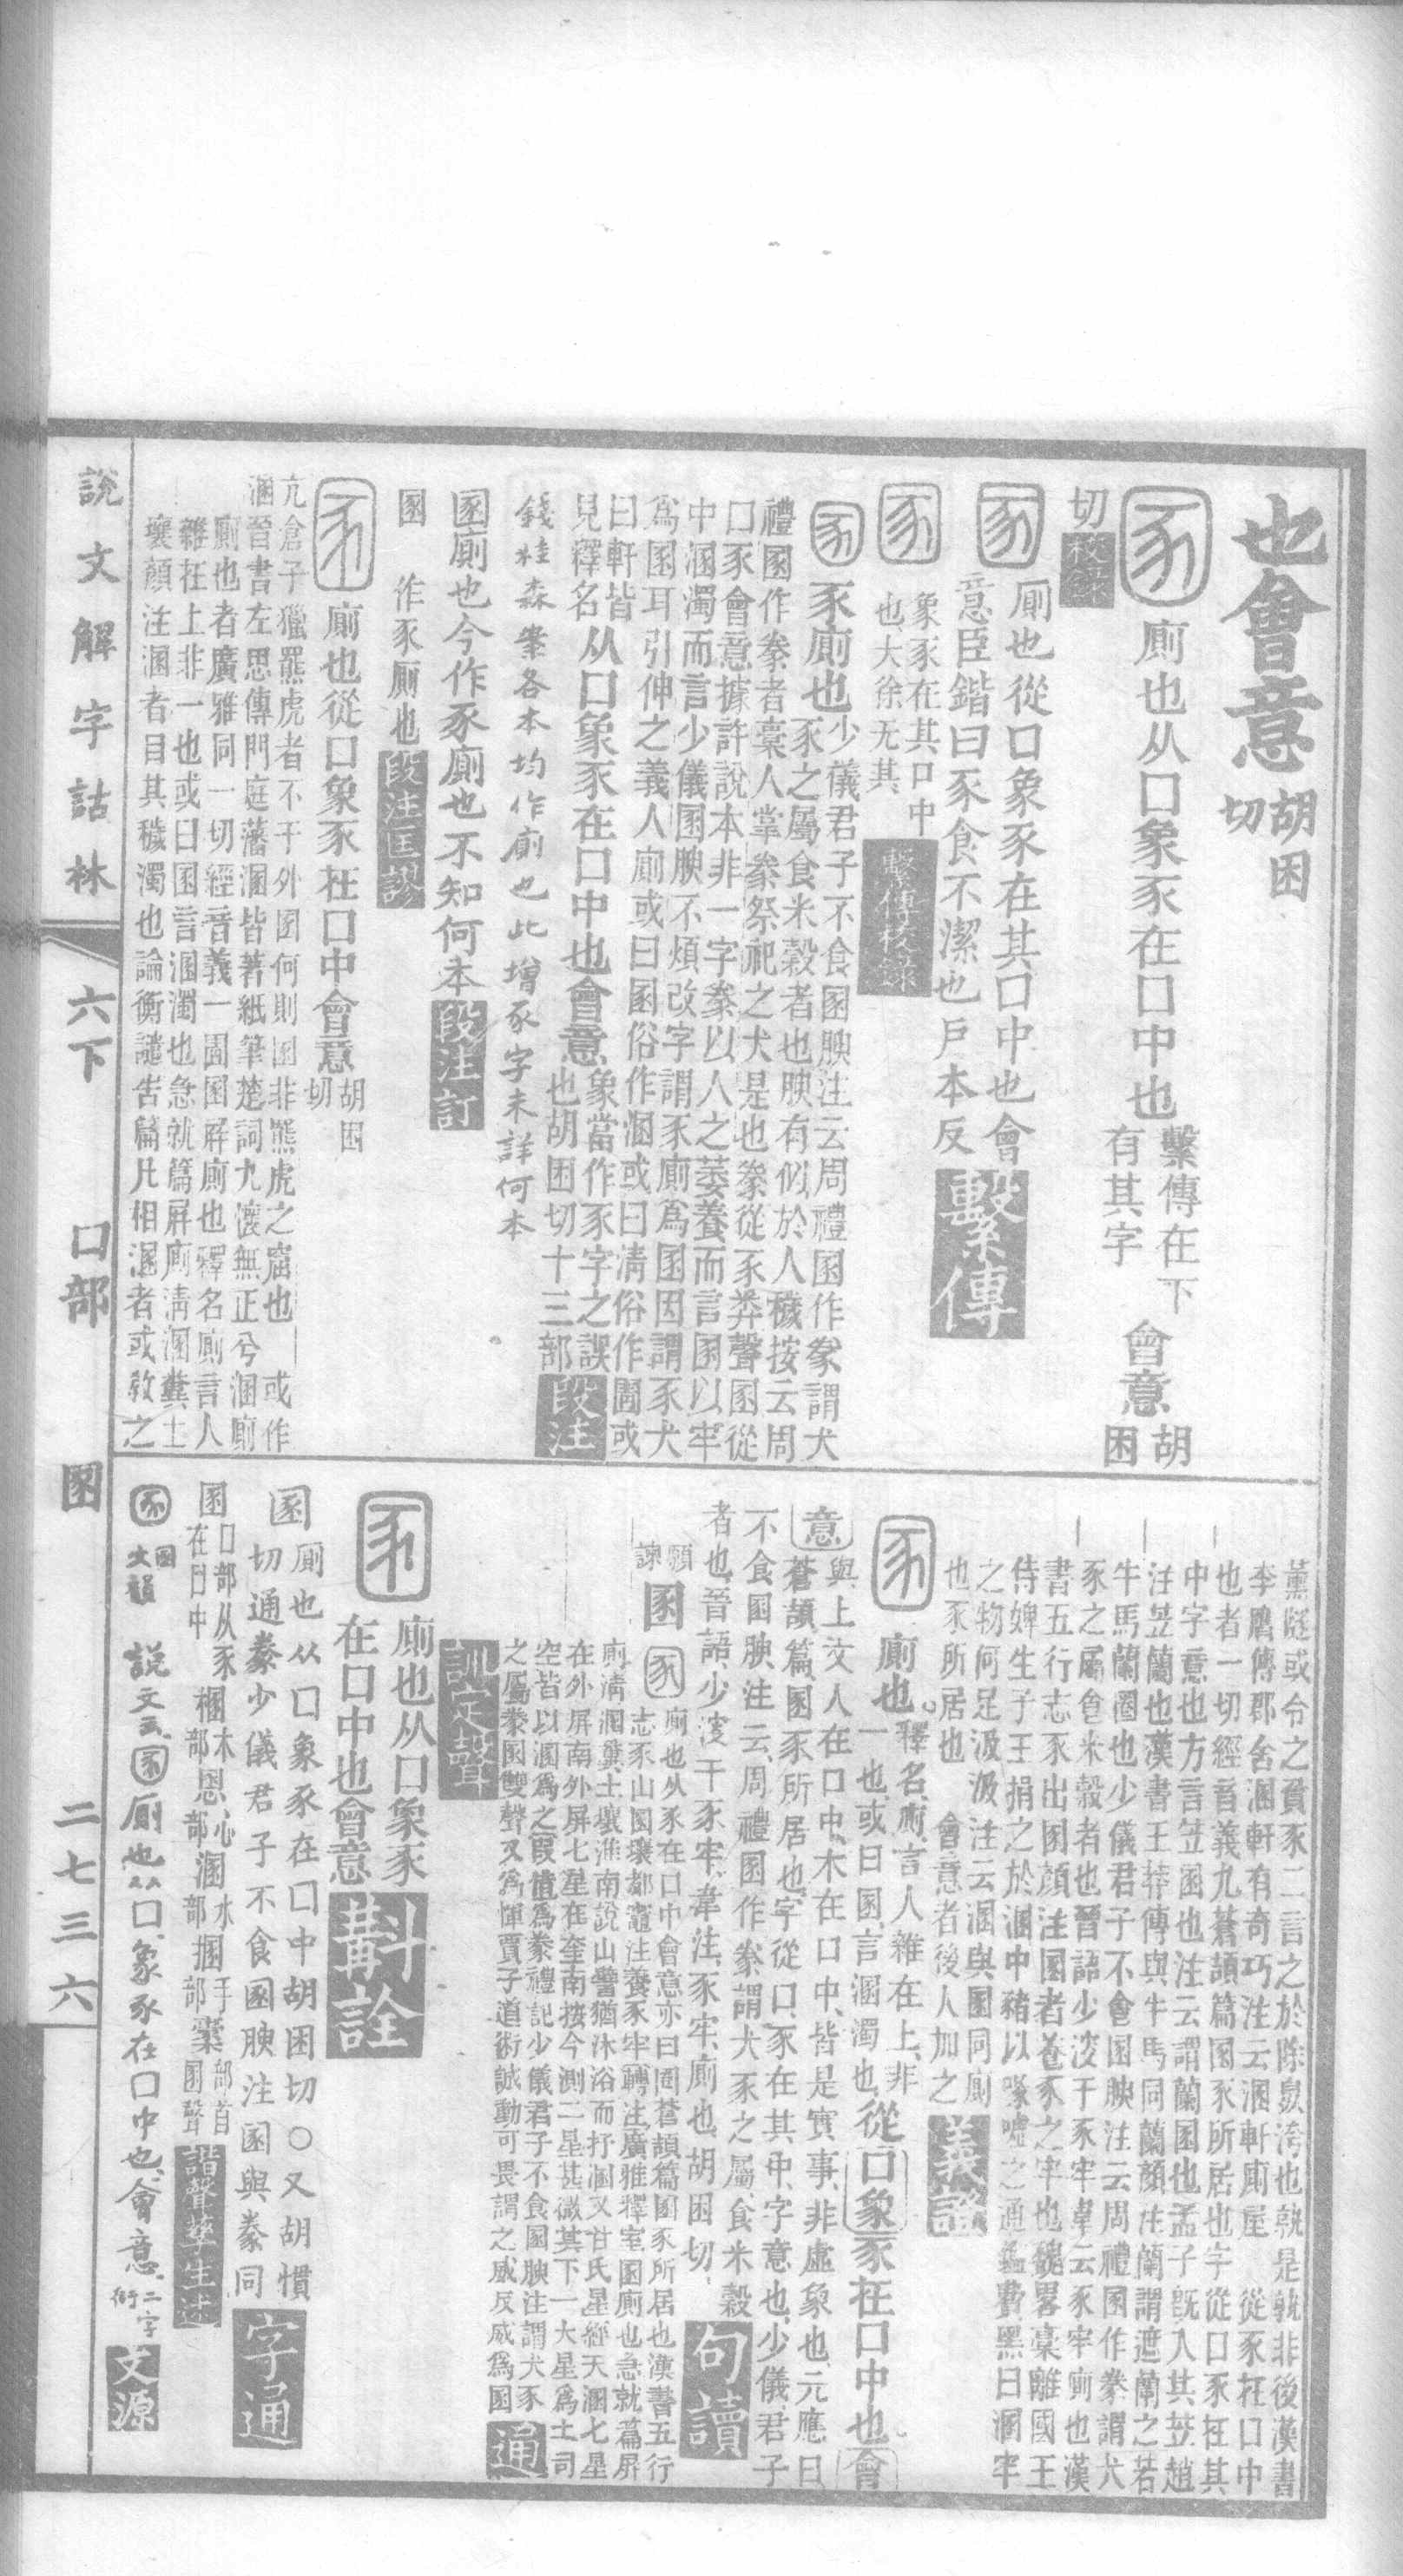 也會意胡困
切
圂廁也从囗象豕在囗中也繫傳在下
有其字會意胡困
切校錄
圂廁也從囗象豕在其囗中也會
意臣鍇曰豕食不潔也戶本反繫傳
圂象豕在其囗中
也大徐无其繫傳校錄
圂豕廁也少儀君子不食圂腴注云周禮圂作豢謂犬
豕之屬食米穀者也腴有似於人穢按云周
禮圂作豢者槀人掌豢祭祀之犬是也豢從豕𢍏聲圂從
囗豕會意據許說本非一字豢以人之萎養而言圂以牢
中溷濁而言少儀圂腴不煩改字謂豕廁爲圂因謂豕犬
爲圂耳引伸之義人廁或曰圂俗作溷或曰清俗作圊或
曰軒皆
見釋名从囗象豕在囗中也會意象當作豕字之誤
也胡困切十三部段注
錢桂森案各本均作廁也此增豕字未詳何本
圂廁也今作豕廁也不知何本段注訂
圂 作豕廁也段注匡謬
圂廁也從囗象豕在囗中會意胡困
切
亢倉子獵羆虎者不于外圂何則圂非羆虎之窟也 或作
溷晉書左思傳門庭藩溷皆著紙筆楚詞九懷無正兮溷廁
廁也者廣雅同一切經音義一圊圂屏廁也釋名廁言人
雜在上非一也或曰圂言溷濁也急就篇屏廁清溷糞土
壤顏注溷者目其穢濁也論衡譴告篇凡相溷者或敎之
薰隧或令之負豕二言之於除臭洿也孰是孰非後漢書
李膺傳郡舍溷軒有奇巧注云溷軒廁屋 從豕在囗中
也者一切經音義九蒼頡篇圂豕所居也字從囗豕在其
中字意也方言苙圂也注云謂蘭圂也孟子旣入其苙趙
注苙蘭也漢書王莽傳與牛馬同蘭顏注蘭謂遮蘭之若
牛馬蘭圈也少儀君子不食圂腴注云周禮圂作豢謂犬
豕之屬食米穀者也晉語少溲于豕牢韋云豕牢廁也漢
書五行志豕出圂顏注圂者養豕之牢也魏畧槀離國王
侍婢生子王捐之於溷中豬以喙噓之通鑑費黑曰溷牢
之物何足汲汲注云溷與圂同廁
也豕所居也 會意者後人加之義證
圂廁也釋名廁言人雜在上非
一也或曰圂言溷濁也從囗象豕在囗中也會
意與上文人在囗中木在囗中皆是實事非虛象也元應曰
蒼頡篇圂豕所居也字從囗豕在其中字意也少儀君子
不食圂腴注云周禮圂作豢謂犬豕之屬食米穀
者也晉語少溲于豕牢韋注豕牢廁也胡困切句讀
圂圂廁也从豕在囗中會意亦曰圊蒼頡篇圂豕所居也漢書五行
志豕出圂壞都竈注養豕牢轉注廣雅釋室圂廁也急就篇屏
廁清溷糞土壤淮南說山譬猶沐浴而抒溷又甘氏星經天溷七星
在外屏南外屏七星在奎南按今測二星甚微其下一大星爲土司
空皆以溷爲之叚借爲豢禮記少儀君子不食圂腴注謂犬豕
之屬豢圂雙聲又爲惲賈子道術誠動可畏謂之威反威爲圂通
訓定聲
圂廁也从囗象豕
在囗中也會意斠詮
圂廁也从囗象豕在囗中胡困切○又胡慣
切通豢少儀君子不食圂腴注圂與豢同字通
圂囗部从豕
在囗中 梱木部 恩心部 溷水部 捆手部 橐部首
圂聲諧聲孳生述
圂說文云圂廁也从囗象豕在囗中也會意二字
衍文源
說文解字詁林 六下 囗部 圂 二七三六